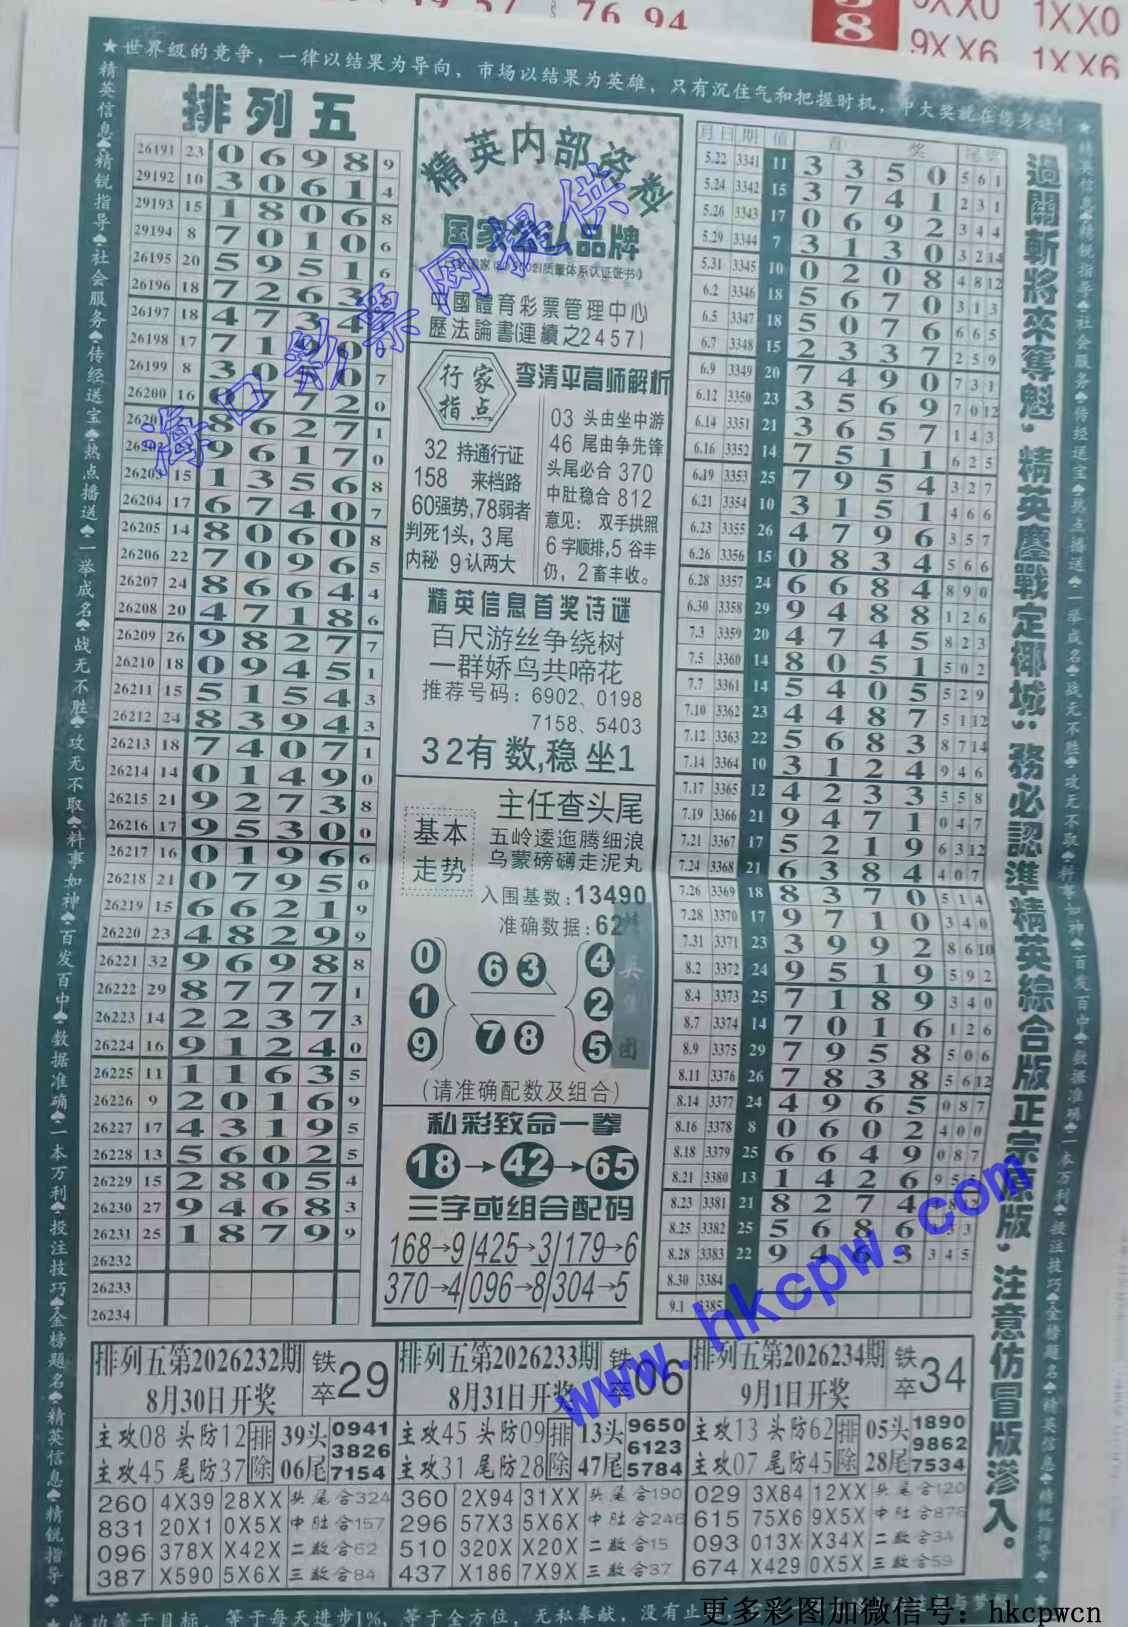 ★世界级的竞争，一律以结果为导向，市场以结果为英雄，只有沉住气和把握时机，中大奖就在您身边！
排列五
26191 23 0 6 9 8 9
29192 10 3 0 6 1 4
29193 15 1 8 0 6 8
29194 8 7 0 1 0 6
26195 20 5 9 5 1 6
26196 18 7 2 6 3
26197 18 4 7 3 4
26198 17 7 1 9 0
26199 8 3 0 7
26200 16 7 2 0
8 6 2 7 1
9 6 1 7 0
26203 15 1 3 5 6 8
26204 17 6 7 4 0 7
26205 14 8 0 6 0 8
26206 22 7 0 9 6 5
26207 24 8 6 6 4 4
26208 20 4 7 1 8 6
26209 26 9 8 2 7 7
26210 18 0 9 4 5 1
26211 15 5 1 5 4 3
26212 24 8 3 9 4 3
26213 18 7 4 0 7 1
26214 14 0 1 4 9 0
26215 21 9 2 7 3 8
26216 17 9 5 3 0 0
26217 16 0 1 9 6 6
26218 21 0 7 9 5 0
26219 15 6 6 2 1 9
26220 23 4 8 2 9 9
26221 32 9 6 9 8 8
26222 29 8 7 7 7 1
26223 14 2 2 3 7 3
26224 16 9 1 2 4 0
26225 11 1 1 6 3 5
26226 9 2 0 1 6 9
26227 17 4 3 1 9 5
26228 13 5 6 0 2 5
26229 15 2 8 0 5 4
26230 27 9 4 6 8 3
26231 25 1 8 7 9 9
26232
26233
26234
精英内部资料
国家 认品牌
中國體育彩票管理中心
歷法論書(連續之2457)
行家
指点
32 持通行证
158 来档路
60强势,78弱者
判死1头,3尾
内秘 9认两大
李清平高师解析
03 头由坐中游
46 尾由争先锋
头尾必合 370
中肚稳合 812
意见： 双手拱照
6 字顺排,5 谷丰
仍，2 畜丰收。
精英信息首奖诗谜
百尺游丝争绕树
一群娇鸟共啼花
推荐号码：6902、0198
7158、5403
32有数,稳坐1
基本
走势
主任查头尾
五岭逶迤腾细浪
乌蒙磅礴走泥丸
入围基数:13490
准确数据: 62
0 6 3 4
1 2
9 7 8 5
(请准确配数及组合)
私彩致命一拳
18→42→65
三字或组合配码
168→9 425→3 179→6
370→4 096→8 304→5
月 日 期 值 首 奖 尾奖
5.22 3341 11 3 3 5 0 5 6 1
5.24 3342 15 3 7 4 1 2 3 1
5.26 3343 17 0 6 9 2 3 4 4
5.29 3344 7 3 1 3 0 3 2 14
5.31 3345 10 0 2 0 8 4 8 12
6.2 3346 18 5 6 7 0 3 1 3
6.5 3347 18 5 0 7 6 6 6 5
6.7 3348 15 2 3 3 7 2 5 9
6.9 3349 20 7 4 9 0 7 3 1
6.12 3350 23 3 5 6 9 7 0 12
6.14 3351 21 3 6 5 7 1 4 3
6.16 3352 14 7 5 1 1 6 2 5
6.19 3353 25 7 9 5 4 3 2 7
6.21 3354 10 3 1 5 1 4 6 6
6.23 3355 26 4 7 9 6 3 5 7
6.26 3356 15 0 8 3 4 5 6 6
6.28 3357 24 6 6 8 4 8 9 0
6.30 3358 29 9 4 8 8 1 2 6
7.3 3359 20 4 7 4 5 8 2 3
7.5 3360 14 8 0 5 1 5 0 2
7.7 3361 14 5 4 0 5 5 2 9
7.10 3362 23 4 4 8 7 5 1 12
7.12 3363 22 5 6 8 3 8 7 14
7.14 3364 10 3 1 2 4 9 4 6
7.17 3365 12 4 2 3 3 5 5 8
7.19 3366 21 9 4 7 1 0 4 7
7.21 3367 17 5 2 1 9 6 3 12
7.24 3368 21 6 3 8 4 4 0 7
7.26 3369 18 8 3 7 0 5 1 4
7.28 3370 17 9 7 1 0 3 4 0
7.31 3371 23 3 9 9 2 8 6 10
8.2 3372 24 9 5 1 9 5 9 2
8.4 3373 25 7 1 8 9 3 4 0
8.7 3374 14 7 0 1 6 1 2 6
8.9 3375 29 7 9 5 8 5 0 6
8.11 3376 26 7 8 3 8 5 6 12
8.14 3377 24 4 9 6 5 0 8 7
8.16 3378 8 0 6 0 2 4 0 0
8.18 3379 25 6 6 4 9 0 8 7
8.21 3380 13 1 4 2 6 9 5
8.23 3381 21 8 2 7 4
8.25 3382 25 5 6 8 6 3
8.28 3383 22 9 4 6 3 3 4 5
8.30 3384
9.1 3385
過關斬將來奪魁，精英鏖戰定椰城；務必認準精英綜合版正宗 版，注意仿冒版滲入。
排列五第2026232期
8月30日开奖
铁卒29
主攻08 头防12 排 39头
主攻45 尾防37 除 06尾
0941
3826
7154
260 4X39 28XX 头尾合324
831 20X1 0X5X 中肚合157
096 378X X42X 二数合62
387 X590 5X6X 三数合84
排列五第2026233期
8月31日开奖
铁卒06
主攻45 头防09 排 13头
主攻31 尾防28 除 47尾
9650
6123
5784
360 2X94 31XX 头尾合190
296 57X3 5X6X 中肚合246
510 320X X20X 二数合15
437 X186 7X9X 三数合37
排列五第2026234期
9月1日开奖
铁卒34
主攻13 头防62 排 05头
主攻07 尾防45 除 28尾
1890
9862
7534
029 3X84 12XX 头尾合120
615 75X6 9X5X 中肚合876
093 013X X34X 二数合34
674 X429 0X5X 三数合59
精英信息♠精锐指导♠社会服务♠传经送宝♠热点播送♠一举成名♠战无不胜♠攻无不取♠料事如神♠百发百中♠数据准确♠一本万利♠投注技巧♠金榜题名♠精英信息♠精锐指导
海口彩票网提供
www.hkcpw.com
更多彩图加微信号：hkcpwcn